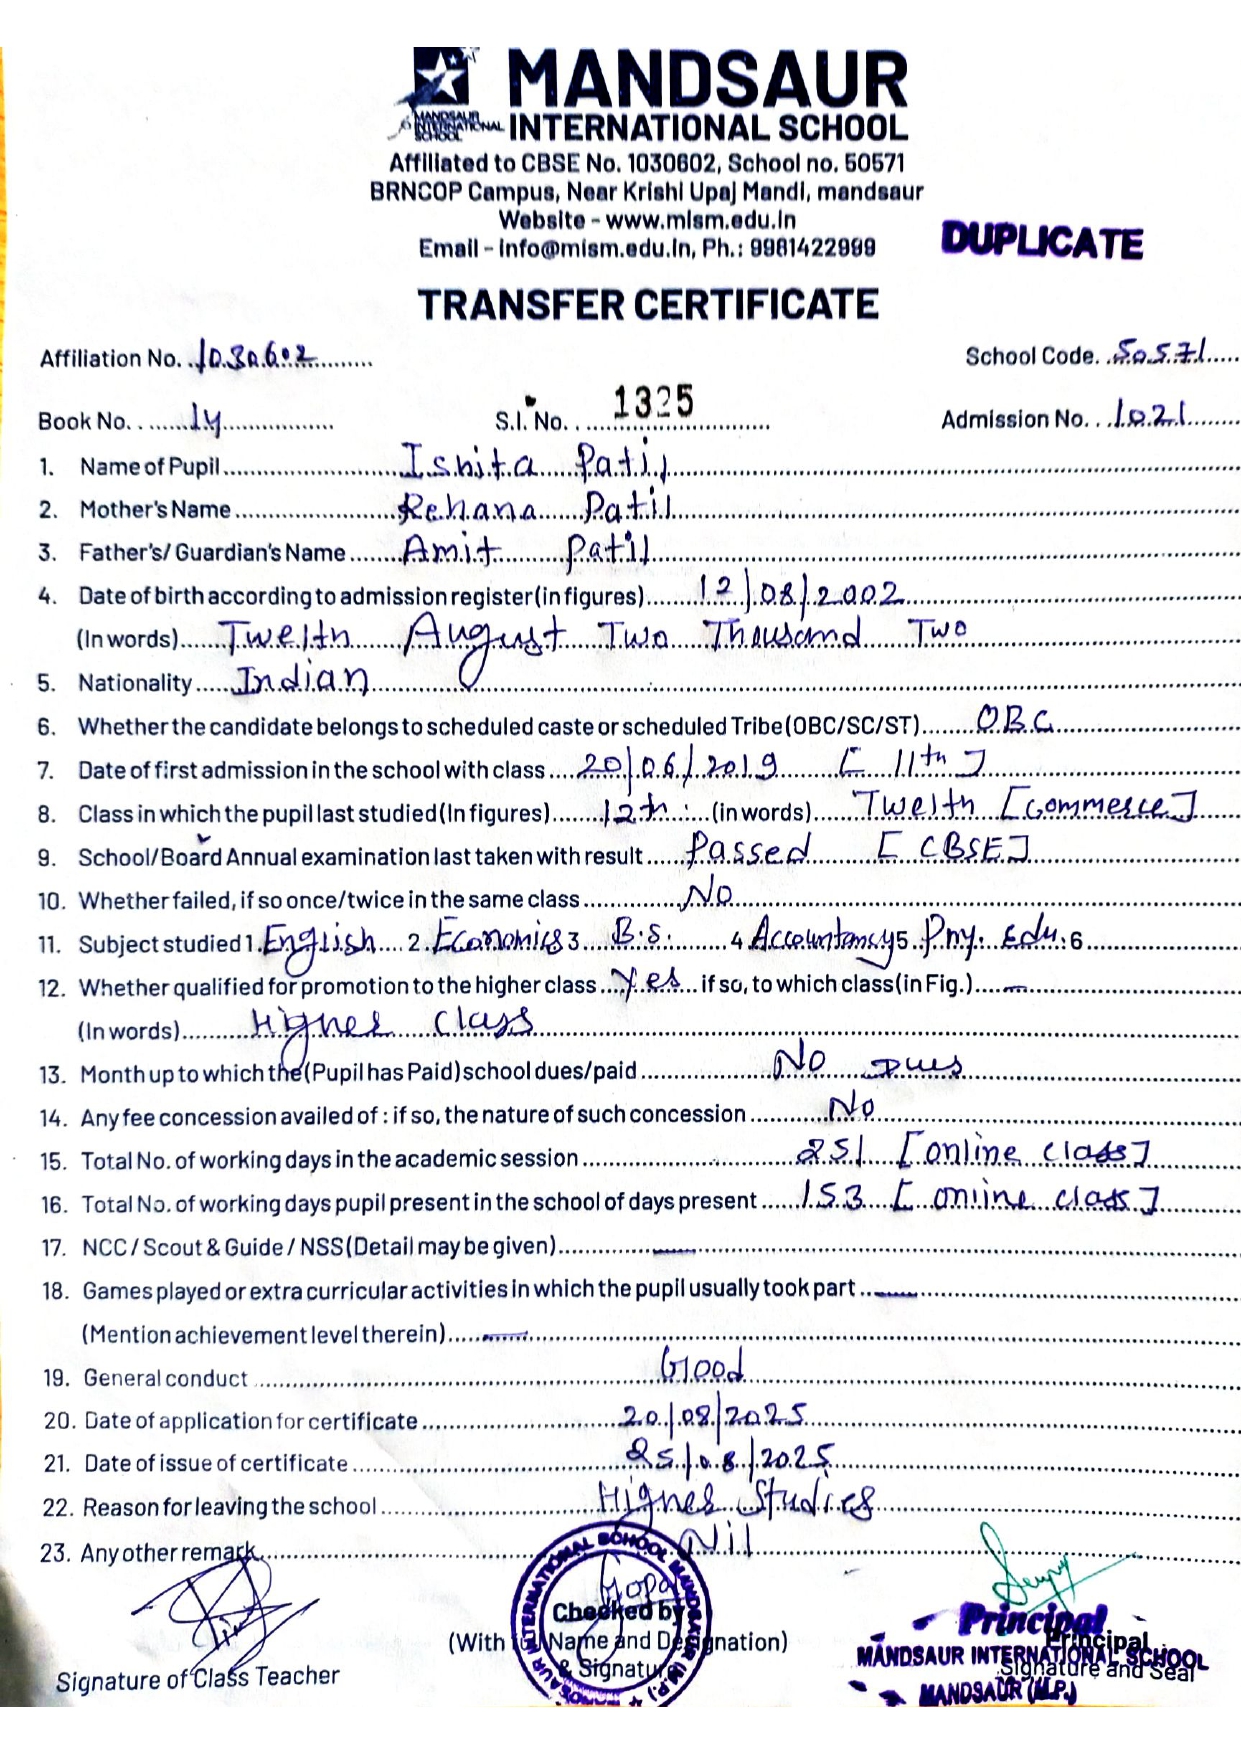 MANDSAUR
MANDSAUR INTERNATIONAL SCHOOL
INTERNATIONAL SCHOOL
Affiliated to CBSE No. 1030602, School no. 50571
BRNCOP Campus, Near Krishi Upaj Mandi, mandsaur
Website - www.mism.edu.in
Email - info@mism.edu.in, Ph.: 9981422999
DUPLICATE
TRANSFER CERTIFICATE
Affiliation No. 1030602 School Code. 50571
Book No. 14 S.I. No. 1325 Admission No. 1021
1. Name of Pupil Ishita Patil
2. Mother's Name Rehana Patil
3. Father's/ Guardian's Name Amit Patil
4. Date of birth according to admission register (in figures) 12/08/2002
(In words) Twelth August Two Thousand Two
5. Nationality Indian
6. Whether the candidate belongs to scheduled caste or scheduled Tribe (OBC/SC/ST) OBC
7. Date of first admission in the school with class 20/06/2019 [11th]
8. Class in which the pupil last studied (In figures) 12th (in words) Twelth [Commerce]
9. School/Board Annual examination last taken with result Passed [CBSE]
10. Whether failed, if so once/twice in the same class No
11. Subject studied 1. English 2. Economics 3 B.S. 4 Accountancy 5. Phy. Edu. 6
12. Whether qualified for promotion to the higher class Yes if so, to which class (in Fig.) —
(In words) Higher Class
13. Month up to which the (Pupil has Paid) school dues/paid No Dues
14. Any fee concession availed of : if so, the nature of such concession No
15. Total No. of working days in the academic session 251 [online class]
16. Total No. of working days pupil present in the school of days present 153 [online class]
17. NCC / Scout & Guide / NSS (Detail may be given) —
18. Games played or extra curricular activities in which the pupil usually took part —
(Mention achievement level therein) —
19. General conduct Good
20. Date of application for certificate 20/08/2025
21. Date of issue of certificate 25/08/2025
22. Reason for leaving the school Higher Studies
23. Any other remark Nil
Signature of Class Teacher
Checked by
(With Name and Designation)
& Signature
Principal
MANDSAUR INTERNATIONAL SCHOOL
MANDSAUR (M.P.)
Principal
Signature and Seal